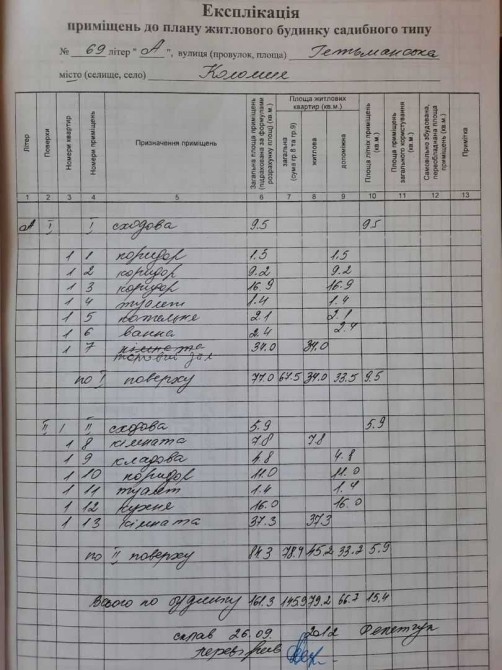 Експлікація
приміщень до плану житлового будинку садибного типу
№ 69 літер " А ", вулиця (провулок, площа) Гетьманська
місто (селище, село) Коломия
Літер Поверхи Номери квартир Номери приміщень Призначення приміщень Загальна площа приміщень (підрахована за формулами розрахунку площі) (кв.м.) Площа житлових квартир (кв.м.) Площа літніх приміщень (кв.м.) Площа приміщень загального користування (кв.м.) Самовільно збудована, переобладнана площа приміщень (кв.м.) Примітка
загальна (сума гр 8 та гр.9) житлова допоміжна
1 2 3 4 5 6 7 8 9 10 11 12 13
А І І сходова 9.5 9.5
1 1 коридор 1.5 1.5
1 2 коридор 9.2 9.2
1 3 коридор 16.9 16.9
1 4 туалет 1.4 1.4
1 5 котельня 2.1 2.1
1 6 ванна 2.4 2.4
1 7 кімната 34.0 34.0
зал
по І поверху 77.0 67.5 34.0 33.5 9.5
ІІ І ІІ сходова 5.9 5.9
1 8 кімната 7.8 7.8
1 9 кладова 4.8 4.8
1 10 коридор 11.0 11.0
1 11 туалет 1.4 1.4
1 12 кухня 16.0 16.0
1 13 кімната 37.3 37.3
по ІІ поверху 84.3 78.4 45.2 33.2 5.9
Всього по будинку 161.3 145.9 79.2 66.7 15.4
склав 26.09. 2012
перевірив